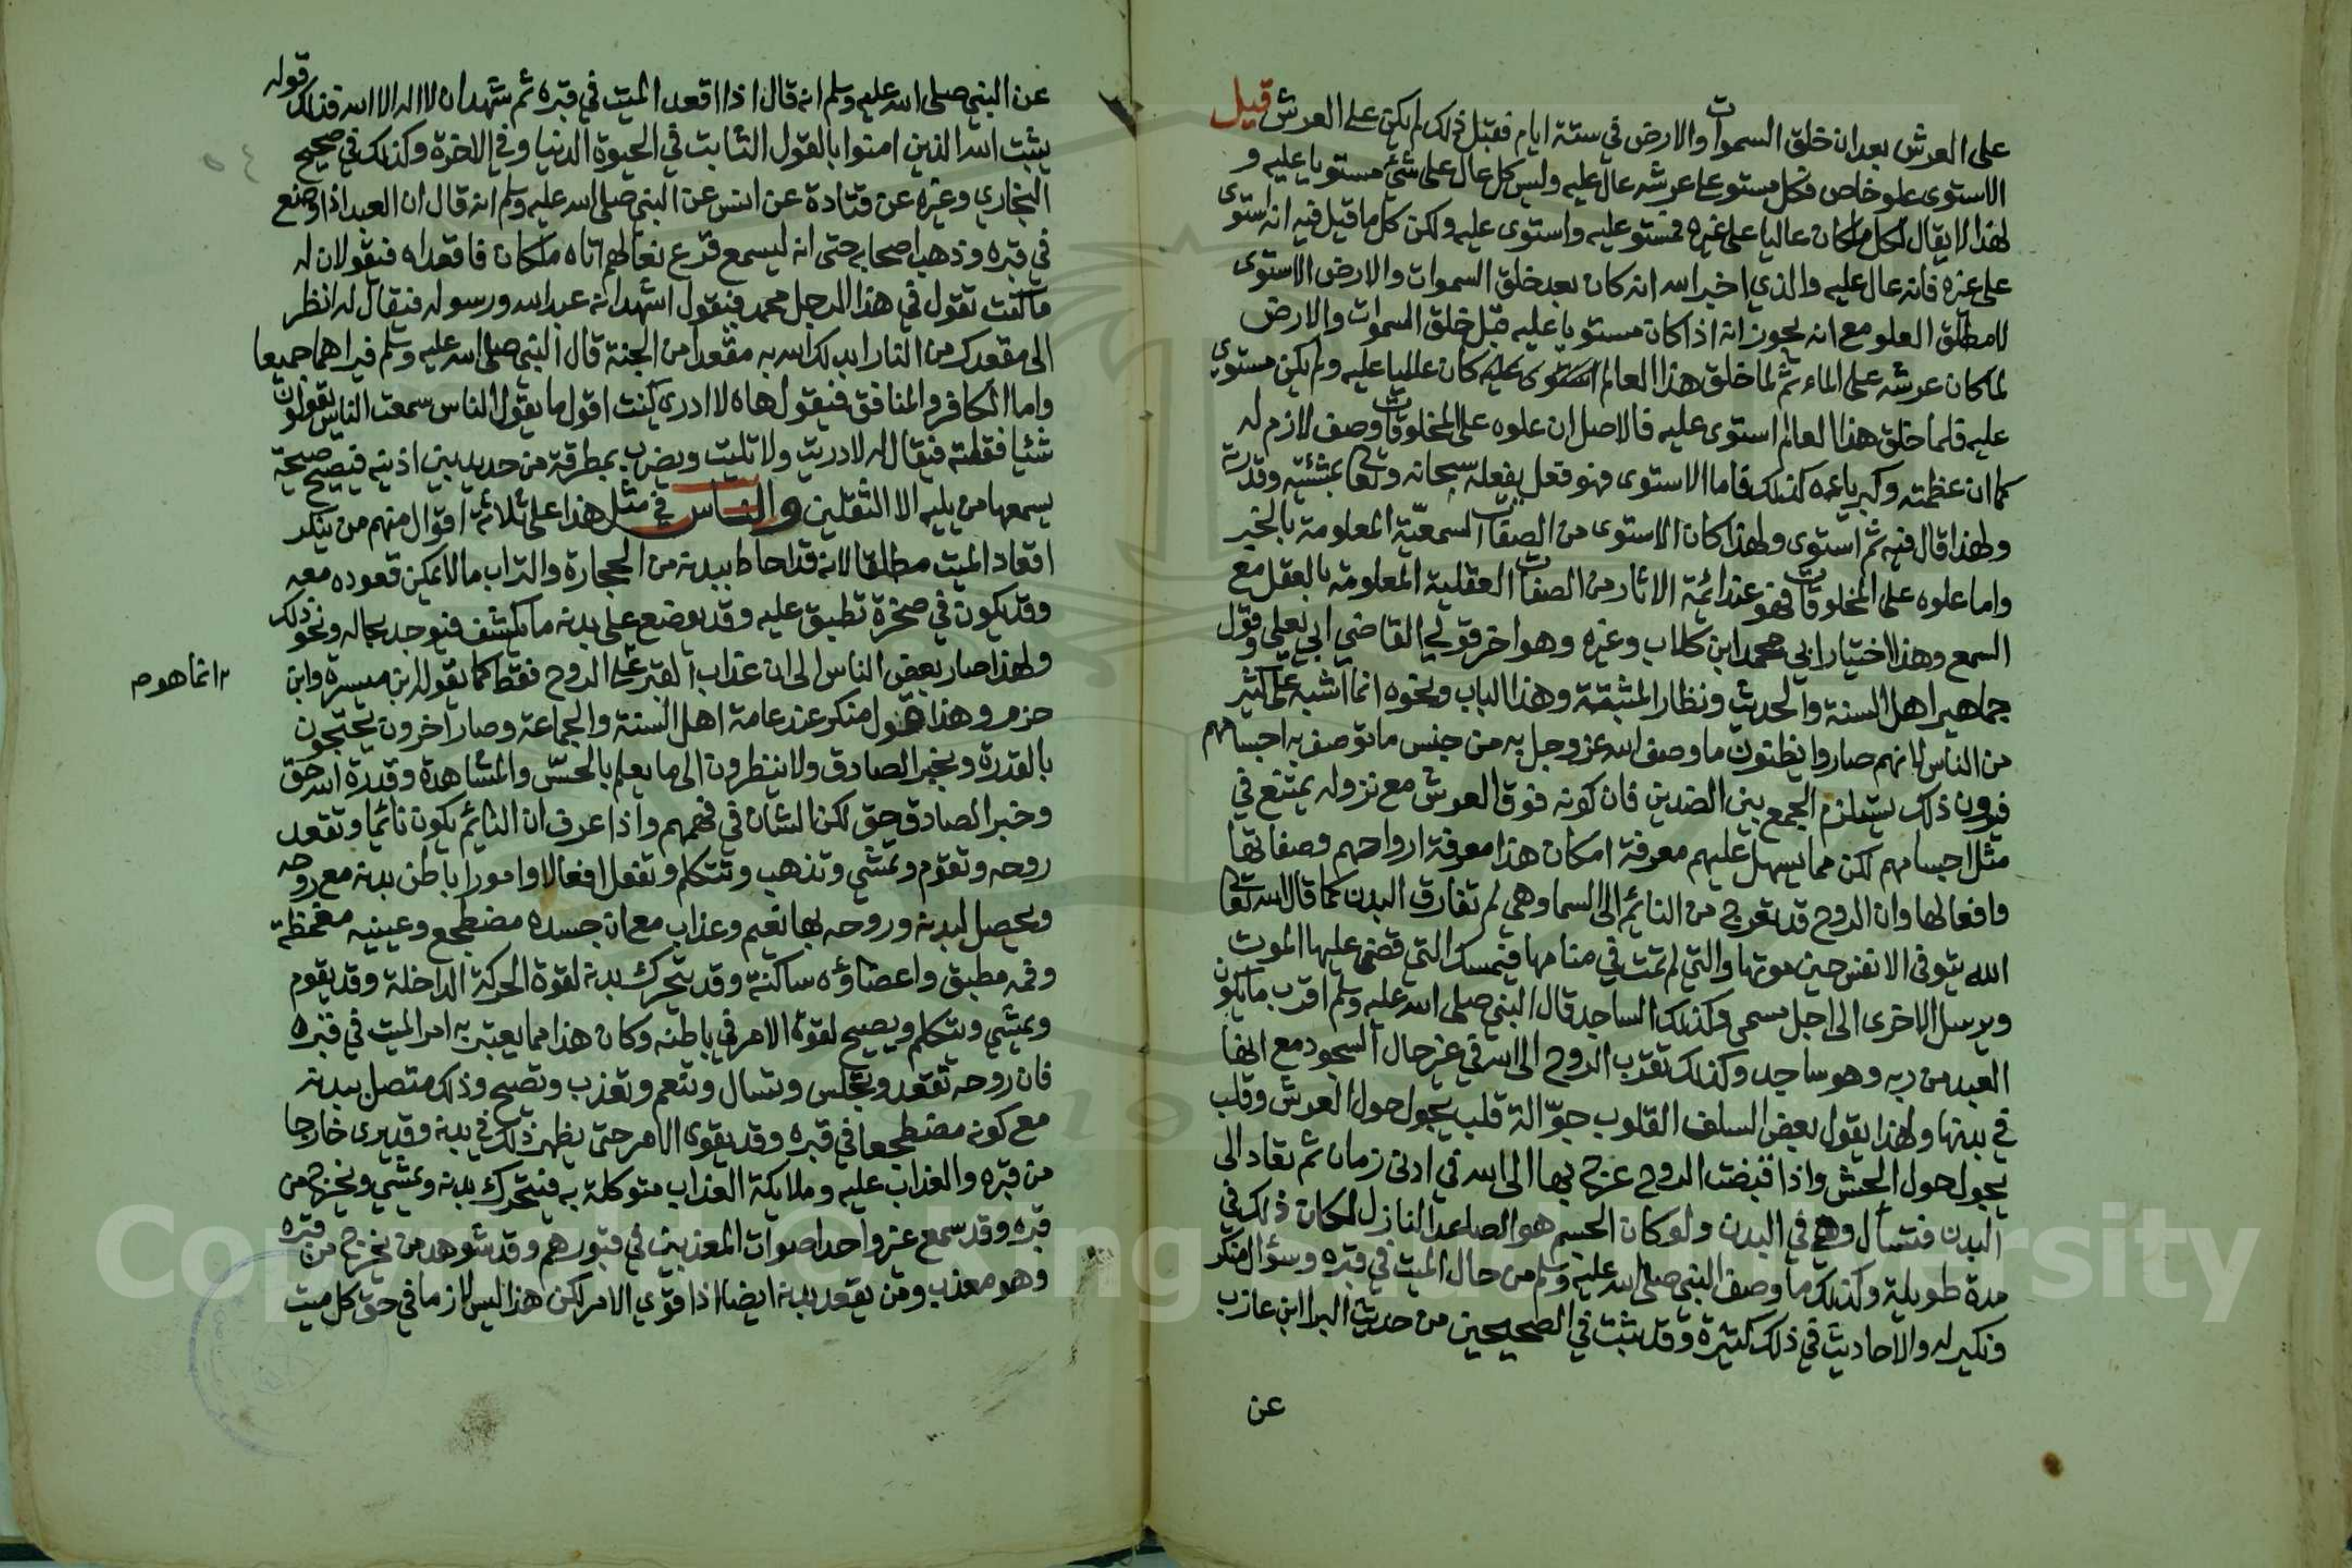 على العرش بعد ان خلق السموات والارض في ستة ايام فقبل ذلك لم يكن على العرش قيل
الاستوى علو خاص فكل مستو على عرشه عال عليه وليس كل عال على شئ مستويا عليه و
لهذا لا يقال لكل ما كان عاليا على غيره مستو عليه واستوى عليه ولكن كل ما قيل فيه انه استوى
على غيره فانه عال عليه والذي اخبر الله انه كان بعد خلق السموات والارض الاستوى
لا مطلق العلو مع انه يجوز انه اذا كان مستويا عليه قبل خلق السموات والارض
لما كان عرشه على الماء ثم لما خلق هذا العالم استوى عليه كان عاليا عليه ولم يكن مستوي
عليه فلما خلق هذا العالم استوى عليه فالاصل ان علوه على المخلوقات وصف لازم له
كما ان عظمته وكبرياءه كذلك فاما الاستوى فهو فعل يفعله سبحانه وتعالى بمشئيته وقدرته
ولهذا قال فيه ثم استوى ولهذا كان الاستوى من الصفات السمعيّة المعلومة بالخبر
واما علوه على المخلوقات فهو عند ائمة الاثار من الصفات العقلية المعلومة بالعقل مع
السمع وهذا اختيار ابي محمد ابن كلاب وغيره وهو اخر قولي القاضي ابي يعلى وقول
جماهير اهل السنة والحديث ونظار المثبتة وهذا الباب ونحوه انما اشبه على كثير
من الناس لانهم صاروا يظنون ما وصف الله عز وجل به من جنس ما توصف به اجسامهم
فيرون ذلك يستلزم الجمع بين الضدين فان كونه فوق العرش مع نزوله يمتنع في
مثل اجسامهم لكن مما يسهل عليهم معرفة امكان هذا معرفة ارواحهم وصفاتها
وافعالها وان الروح قد تعرج من النائم الى السما وهي لم تفارق البدن كما قال الله تعالى
الله يتوفى الانفس حين موتها والتي لم تمت في منامها فيمسك التي قضى عليها الموت
ويرسل الاخرى الى اجل مسمى وكذلك الساجد قال النبي صلى الله عليه وسلم اقرب ما يكون
العبد من ربه وهو ساجد وكذلك تقرب الروح الى الله في غير حال السجود مع انها
في بدنها ولهذا يقول بعض السلف القلوب جوّالة قلب يجول حول العرش وقلب
يجول حول الحش واذا قبضت الروح عرج بها الى الله في ادنى زمان ثم تعاد الى
البدن فتسأل وهي في البدن ولو كان الجسم هو الصاعد النازل لكان ذلك في
مدة طويلة وكذلك ما وصف النبي صلى الله عليه وسلم من حال الميت في قبره وسؤال منكر
ونكير له والاحاديث في ذلك كثيرة وقد ثبت في الصحيحين من حديث البرا ابن عازب
عن
عن النبي صلى الله عليه وسلم انه قال اذا اقعد الميت في قبره ثم شهد ان لا اله الا الله فذلك قوله
يثبت الله الذين امنوا بالقول الثابت في الحيوة الدنيا وفي الاخرة وكذلك في صحيح
البخاري وغيره عن قتادة عن انس عن النبي صلى الله عليه وسلم انه قال ان العبد اذا وضع
في قبره وذهب اصحابه حتى انه ليسمع قرع نعالهم اتاه ملكان فاقعداه فيقولان له
ما كنت تقول في هذا الرجل محمد فيقول اشهد انه عبد الله ورسوله فيقال له انظر
الى مقعدك من النار ابدلك الله به مقعدا من الجنة قال النبي صلى الله عليه وسلم فيراهما جميعا
واما الكافر والمنافق فيقول هاه لا ادري كنت اقول ما يقول الناس سمعت الناس يقولون
شئيا فقلته فيقال له لا دريت ولا تليت ويضرب بمطرقة من حديد بين اذنيه فيصيح صيحة
يسمعها من يليه الا الثقلين والناس في مثل هذا على ثلاثة اقوال منهم من ينكر
اقعاد الميت مطلقا لانه قد احاط ببدنه من الحجارة والتراب ما لا يمكن قعوده معه
وقد يكون في صخرة تطبق عليه وقد يوضع على بدنه ما يكشف فيوجد بحاله ونحو ذلك
ولهذا صار بعض الناس الى ان عذاب القبر على الروح فقط كما يقوله ابن ميسرة وابن
انما هو
حزم وهذا قول منكر عند عامة اهل السنة والجماعة وصار اخرون يحتجون
بالقدرة وبخبر الصادق ولا ينظرون الى ما يعلم بالحسّ والمشاهدة وقدرة الله حق
وخبر الصادق حق لكن الشان في فهمهم واذا عرف ان النائم يكون نائما وتقعد
روحه وتقوم وتمشي وتذهب وتتكلم وتفعل افعالا وامورا باطن بدنه مع روحه
ويحصل لبدنه وروحه بها نعيم وعذاب مع ان جسده مضطجع وعينيه مغمظة
وفمه مطبق واعضاؤه ساكنة وقد يتحرك بدنه لقوة الحركة الداخلة وقد يقوم
ويمشي ويتكلم ويصيح لقوة الامر في باطنه وكان هذا مما يعتبر به امر الميت في قبره
فان روحه تقعد وتجلس وتسال وتنعم وتعذب وتصيح وذلك متصل ببدنه
مع كونه مضطجعا في قبره وقد يقوى الامر حتى يظهر ذلك في بدنه وقد يرى خارجا
من قبره والعذاب عليه وملايكة العذاب متوكلة به فيتحرك بدنه ويمشي ويخرج من
قبره وقد سمع غير واحد اصوات المعذبين في قبورهم وقد شوهد من يخرج من قبره
وهو معذب ومن يقعد بدنه ايضا اذا قوي الامر لكن هذا ليس لازما في حق كل ميت